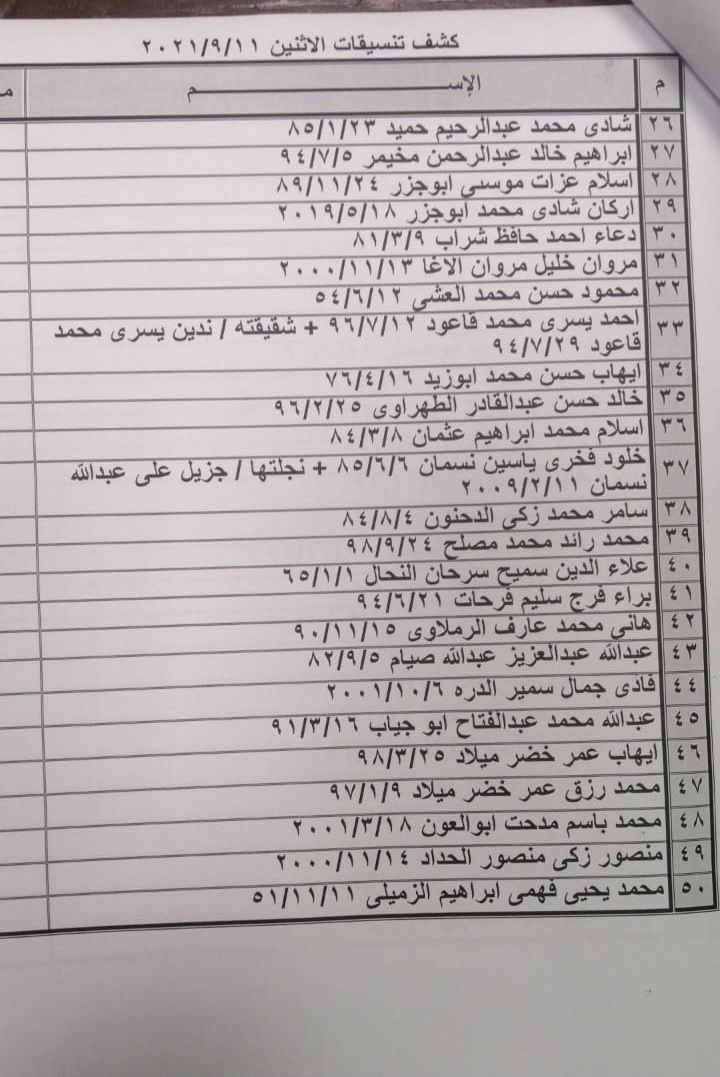 كشف تنسيقات الاثنين ٢٠٢١/٩/١١
م الإســـــــم مـ
٢٦ شادى محمد عبدالرحيم حميد ٨٥/١/٢٣
٢٧ ابراهيم خالد عبدالرحمن مخيمر ٩٤/٧/٥
٢٨ اسلام عزات موسى ابوجزر ٨٩/١١/٢٤
٢٩ اركان شادى محمد ابوجزر ٢٠١٩/٥/١٨
٣٠ دعاء احمد حافظ شراب ٨١/٣/٩
٣١ مروان خليل مروان الاغا ٢٠٠٠/١١/١٣
٣٢ محمود حسن محمد العشى ٥٤/٦/١٢
٣٣ احمد يسرى محمد قاعود ٩٦/٧/١٢ + شقيقته / ندين يسرى محمد
قاعود ٩٤/٧/٢٩
٣٤ ايهاب حسن محمد ابوزيد ٧٦/٤/١٦
٣٥ خالد حسن عبدالقادر الطهراوى ٩٦/٢/٢٥
٣٦ اسلام محمد ابراهيم عثمان ٨٤/٣/٨
٣٧ خلود فخرى ياسين نسمان ٨٥/٦/٦ + نجلتها / جزيل على عبدالله
نسمان ٢٠٠٩/٢/١١
٣٨ سامر محمد زكى الدحنون ٨٤/٨/٤
٣٩ محمد رائد محمد مصلح ٩٨/٩/٢٤
٤٠ علاء الدين سميح سرحان النحال ٦٥/١/١
٤١ براء فرج سليم فرحات ٩٤/٦/٢١
٤٢ هانى محمد عارف الرملاوى ٩٠/١١/١٥
٤٣ عبدالله عبدالعزيز عبدالله صيام ٨٢/٩/٥
٤٤ فادى جمال سمير الدره ٢٠٠١/١٠/٦
٤٥ عبدالله محمد عبدالفتاح ابو جياب ٩١/٣/١٦
٤٦ ايهاب عمر خضر ميلاد ٩٨/٣/٢٥
٤٧ محمد رزق عمر خضر ميلاد ٩٧/١/٩
٤٨ محمد باسم مدحت ابوالعون ٢٠٠١/٣/١٨
٤٩ منصور زكى منصور الحداد ٢٠٠٠/١١/١٤
٥٠ محمد يحيى فهمى ابراهيم الزميلى ٥١/١١/١١